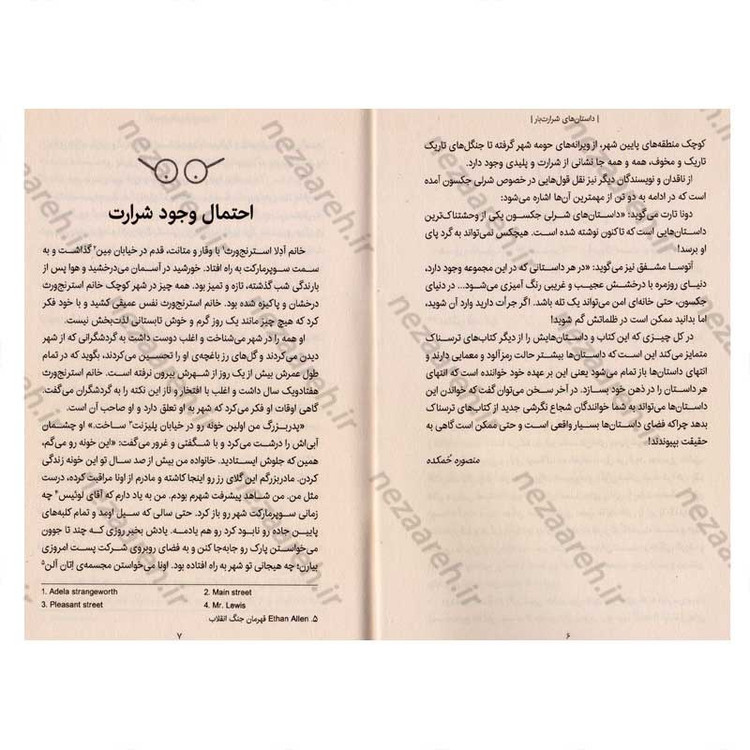 | داستان‌های شرارت‌بار |
کوچک منطقه‌های پایین شهر، از ویرانه‌های حومه شهر گرفته تا جنگل‌های تاریک
تاریک و مخوف، همه و همه جا نشانی از شرارت و پلیدی وجود دارد.
از ناقدان و نویسندگان دیگر نیز نقل قول‌هایی در خصوص شرلی جکسون آمده
است که در ادامه به دو تن از مهمترین آن‌ها اشاره می‌شود:
دونا تارت می‌گوید: «داستان‌های شرلی جکسون یکی از وحشتناک‌ترین
داستان‌هایی است که تاکنون نوشته شده است. هیچکس نمی‌تواند به گرد پای
او برسد!
آتوسا مشفق نیز می‌گوید: «در هر داستانی که در این مجموعه وجود دارد،
دنیای روزمره با درخشش عجیب و غریبی رنگ آمیزی می‌شود... در دنیای
جکسون، حتی خانه‌ای امن می‌تواند یک تله باشد. اگر جرأت دارید وارد آن شوید،
اما بدانید ممکن است در ظلماتش گم شوید!
در کل چیزی که این کتاب و داستان‌هایش را از دیگر کتاب‌های ترسناک
متمایز می‌کند این است که داستان‌ها بیشتر حالت رمزآلود و معمایی دارند و
انتهای داستان‌ها باز تمام می‌شود یعنی این بر عهده خود خواننده است که انتهای
هر داستان را در ذهن خود بسازد. در آخر سخن می‌توان گفت که خواندن این
داستان‌ها می‌تواند به شما خوانندگان شجاع نگرشی جدید از کتاب‌های ترسناک
بدهد چراکه فضای داستان‌ها بسیار واقعی است و حتی ممکن است گاهی به
حقیقت بپیوندند!
منصوره خمکده
۶
احتمال وجود شرارت
خانم آدِلا استرنج‌ورث۱ با وقار و متانت، قدم در خیابان مِین۲ گذاشت و به
سمت سوپرمارکت به راه افتاد. خورشید در آسمان می‌درخشید و هوا پس از
بارندگی شب گذشته، تازه و تمیز بود. همه چیز در شهر کوچک خانم استرنج‌ورث
درخشان و پاکیزه شده بود. خانم استرنج‌ورث نفس عمیقی کشید و با خود فکر
کرد که هیچ چیز مانند یک روز گرم و خوش تابستانی لذت‌بخش نیست.
او همه را در شهر می‌شناخت و اغلب دوست داشت به گردشگرانی که از شهر
دیدن می‌کردند و گل‌های رز باغچه‌ی او را تحسین می‌کردند، بگوید که در تمام
طول عمرش بیش از یک روز از شهرش بیرون نرفته است. خانم استرنج‌ورث
هفتادویک سال داشت و اغلب با افتخار و ناز این نکته را به گردشگران می‌گفت.
گاهی اوقات او فکر می‌کرد که شهر به او تعلق دارد و او صاحب آن است.
«پدربزرگ من اولین خونه رو در خیابان پلیزنت۳ ساخت.» او چشمان
آبی‌اش را درشت می‌کرد و با شگفتی و غرور می‌گفت: «این خونه رو می‌گم،
همین که جلوش ایستادید. خانواده من بیش از صد سال تو این خونه زندگی
کردن. مادربزرگم این گلای رز رو اینجا کاشته و مادرم از اونا مراقبت کرده، درست
مثل من. من شاهد پیشرفت شهرم بودم. من به یاد دارم که آقای لوئیس۴ چه
زمانی سوپرمارکت شهر رو باز کرد. حتی سالی که سیل اومد و تمام کلبه‌های
پایین جاده رو نابود کرد رو هم یادمه. یادش بخیر روزی که چند تا جوون
می‌خواستن پارک رو جابه‌جا کنن و به فضای روبروی شرکت پست امروزی
بیارن؛ چه هیجانی تو شهر به راه افتاده بود. اونا می‌خواستن مجسمه‌ی اِتان آلن۵
1. Adela strangeworth 2. Main street
3. Pleasant street 4. Mr. Lewis
۵. Ethan Allen قهرمان جنگ انقلاب
۷
nezaareh.ir